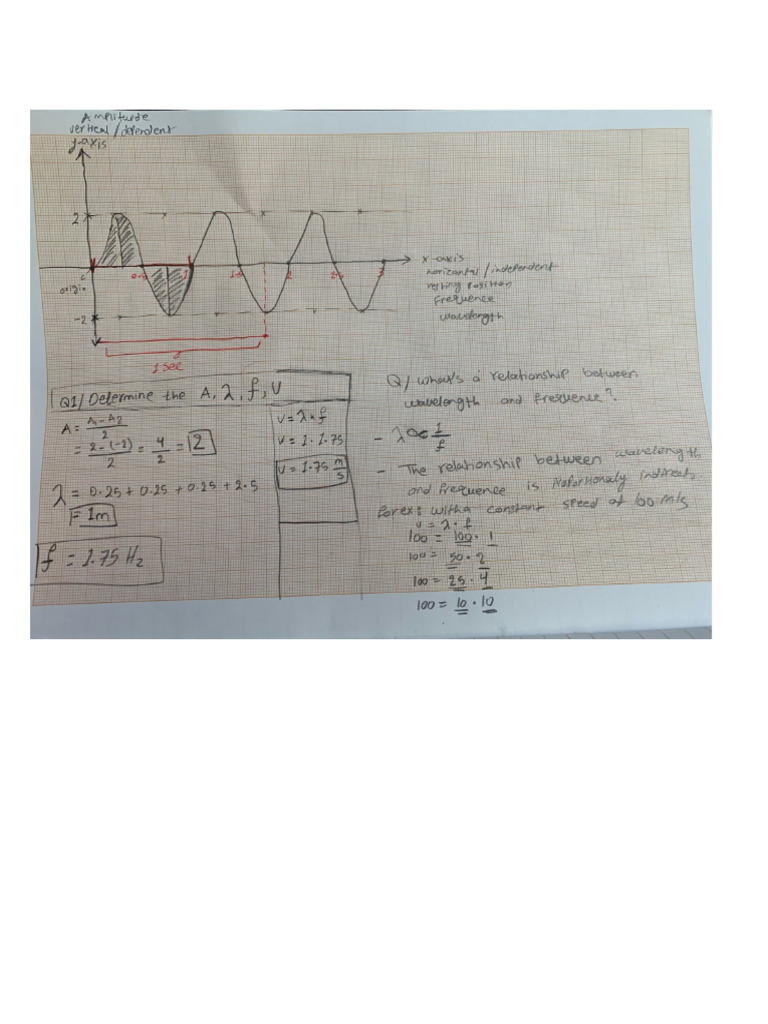 Amplitude
vertical/dependent
y-axis
2
0
origin
0.5
1
1.5
2
2.5
3
x-axis
horizantal/independent
resting position
frequence
wavelength
-2
1 sec
Q1/Determine the A, λ, f, V
A = A₁-A₂/2
= 2-(-2)/2 = 4/2 = 2
λ = 0.25 + 0.25 + 0.25 + 2.5
= 1m
f = 1.75 Hz
V = λ × f
V = 1 . 1.75
V = 1.75 m/s
Q/ what's a relationship between
wavelength and fresuence?
- λ ∝ 1/f
- The relationship between wavelength
and frequence is
with a constant speed of 100 m/s
v = λ . f
100 = 100 . 1
100 = 50 . 2
100 = 25 . 4
100 = 10 . 10